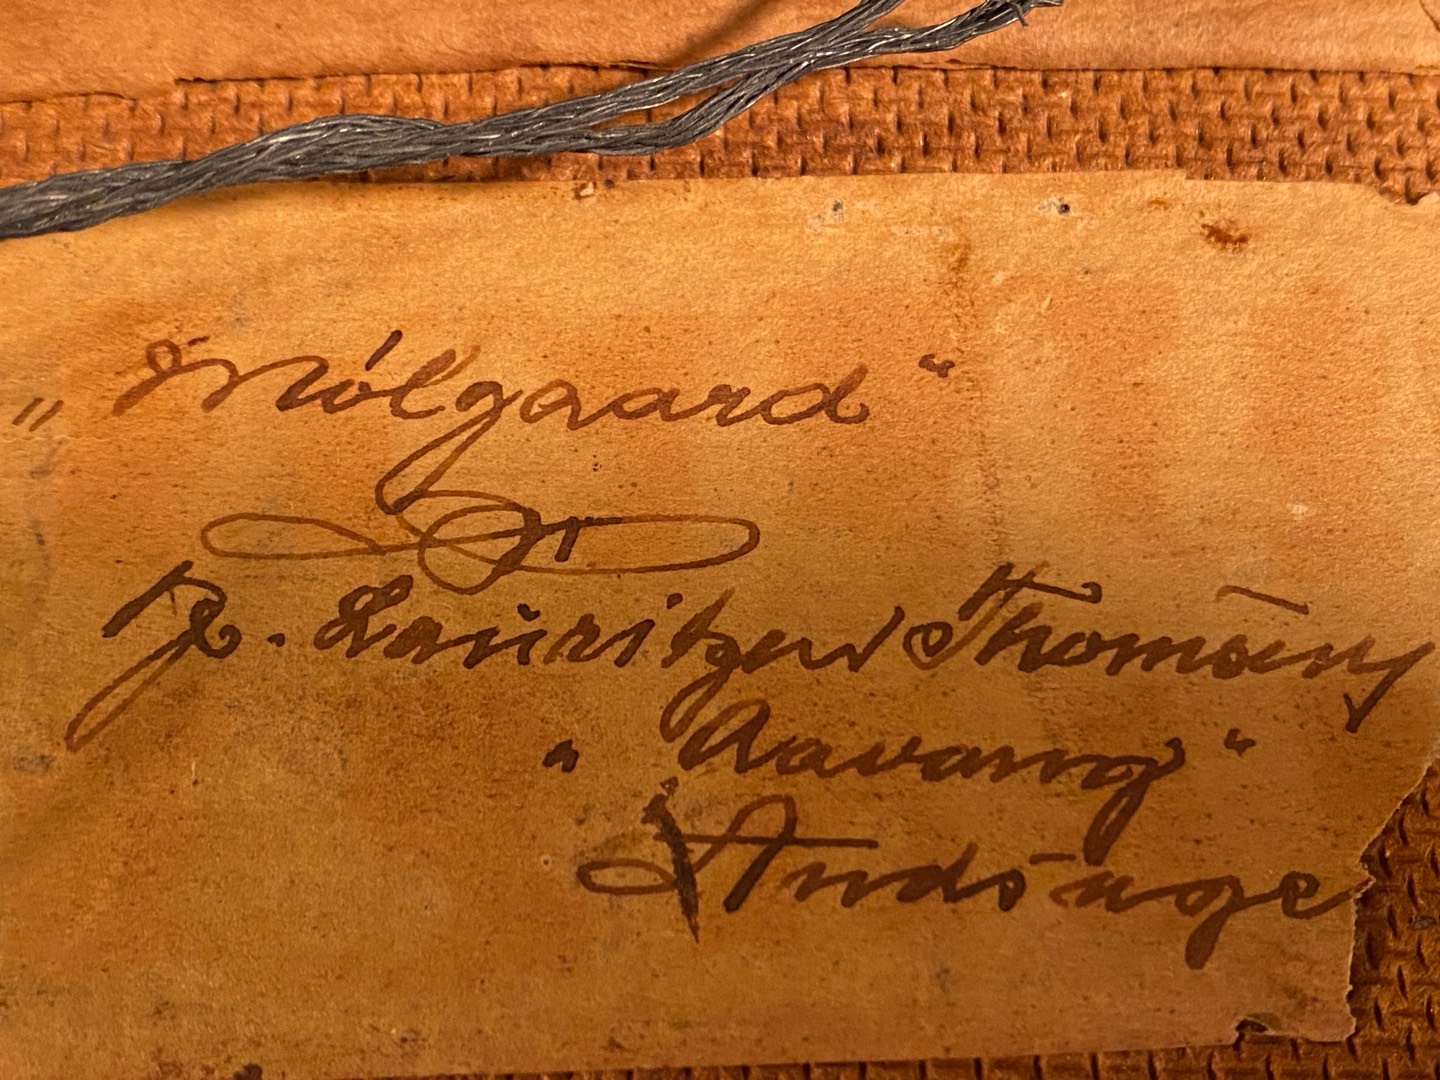 „Mólgaard“
P. Lauritzen Thomsens
"Aavang"
Andsager